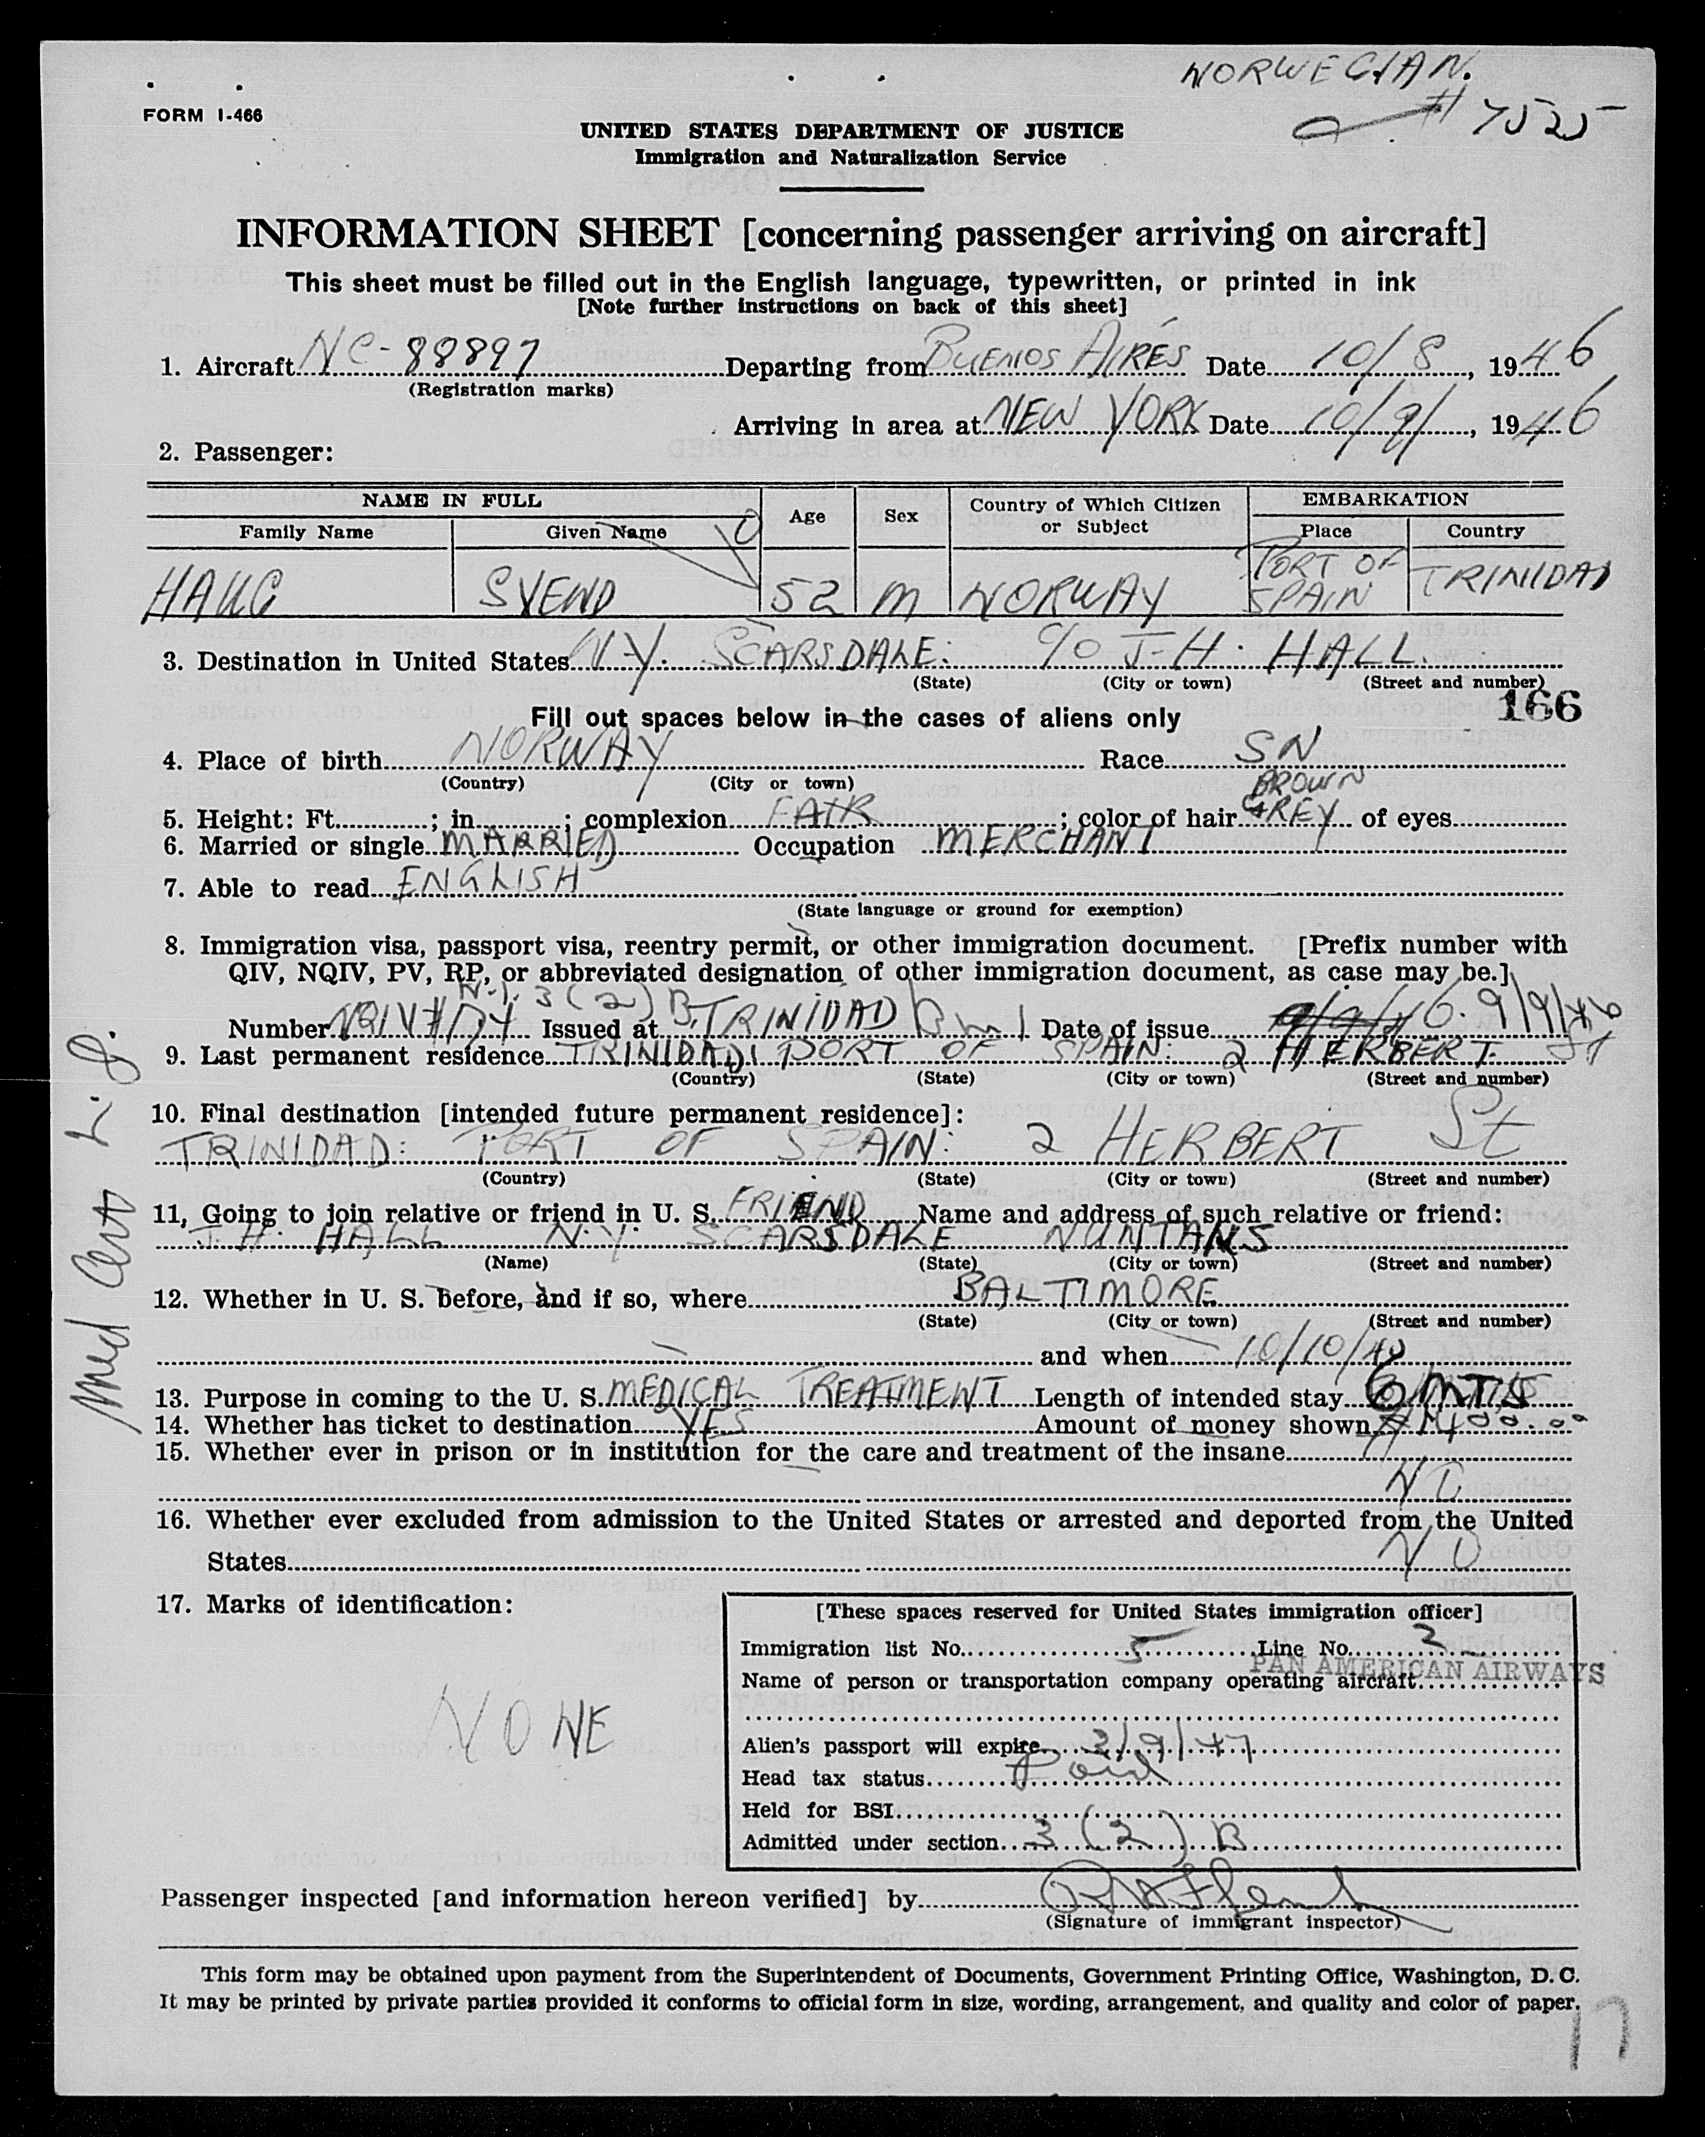 NORWEGIAN.
# 7525
FORM I-466
UNITED STATES DEPARTMENT OF JUSTICE
Immigration and Naturalization Service
INFORMATION SHEET [concerning passenger arriving on aircraft]
This sheet must be filled out in the English language, typewritten, or printed in ink
[Note further instructions on back of this sheet]
1. Aircraft NC-88897 Departing from BUENOS AIRES Date 10/8, 1946
(Registration marks)
Arriving in area at NEW YORK Date 10/9/, 1946
2. Passenger:
NAME IN FULL Age Sex Country of Which Citizen or Subject EMBARKATION
Family Name Given Name Place Country
HAUG SVEND 52 M NORWAY PORT OF SPAIN TRINIDAD
3. Destination in United States N.Y. SCARSDALE: c/o J-H. HALL.
(State) (City or town) (Street and number)
166
Fill out spaces below in the cases of aliens only
4. Place of birth NORWAY Race SN
(Country) (City or town)
BROWN
5. Height: Ft. ; in. ; complexion FAIR ; color of hair GREY of eyes
6. Married or single MARRIED Occupation MERCHANT
7. Able to read ENGLISH
(State language or ground for exemption)
8. Immigration visa, passport visa, reentry permit, or other immigration document. [Prefix number with
QIV, NQIV, PV, RP, or abbreviated designation of other immigration document, as case may be.]
3(2)B
Number NQIV#174 Issued at TRINIDAD Date of issue 9/9/46
9. Last permanent residence TRINIDAD: PORT OF SPAIN: 2 HERBERT St
(Country) (State) (City or town) (Street and number)
10. Final destination [intended future permanent residence]:
TRINIDAD: PORT OF SPAIN: 2 HERBERT St
(Country) (State) (City or town) (Street and number)
11, Going to join relative or friend in U. S. FRIEND Name and address of such relative or friend:
J.H. HALL N.Y. SCARSDALE
(Name) (State) (City or town) (Street and number)
12. Whether in U. S. before, and if so, where BALTIMORE
(State) (City or town) (Street and number)
and when 10/10/40
13. Purpose in coming to the U. S. MEDICAL TREATMENT Length of intended stay 6 MTS
14. Whether has ticket to destination YES Amount of money shown $ 1400.00
15. Whether ever in prison or in institution for the care and treatment of the insane
NO
16. Whether ever excluded from admission to the United States or arrested and deported from the United
States NO
17. Marks of identification:
NONE
[These spaces reserved for United States immigration officer]
Immigration list No. 5 Line No. 2
PAN AMERICAN AIRWAYS
Name of person or transportation company operating aircraft
Alien's passport will expire 3/9/47
Head tax status Paid
Held for BSI
Admitted under section 3(2)B
Passenger inspected [and information hereon verified] by
(Signature of immigrant inspector)
This form may be obtained upon payment from the Superintendent of Documents, Government Printing Office, Washington, D. C.
It may be printed by private parties provided it conforms to official form in size, wording, arrangement, and quality and color of paper.
17
Med Cert